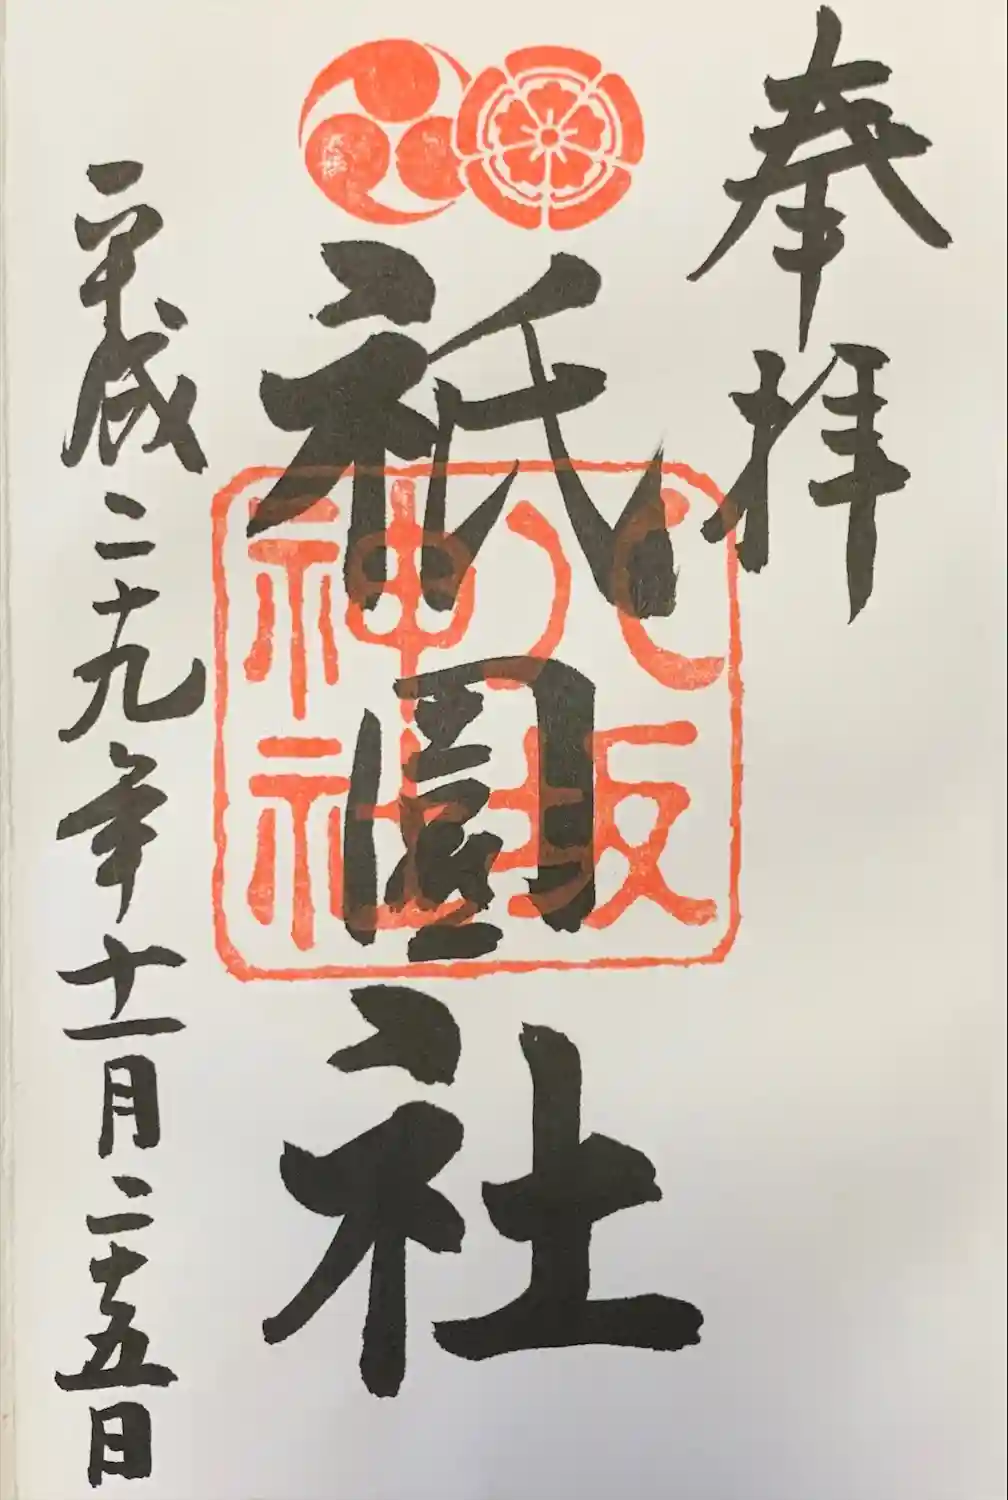 奉拝
祇園社
八坂神社
平成二十九年十一月二十五日